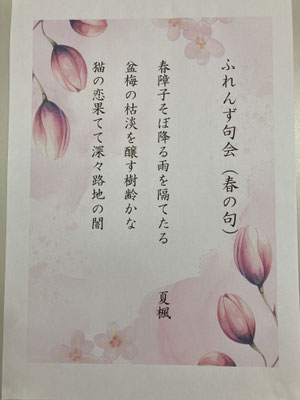 ふれんず句会（春の句）
春障子そぼ降る雨を隔てたる
盆梅の枯淡を醸す樹齢かな
猫の恋果てて深々路地の闇
夏楓